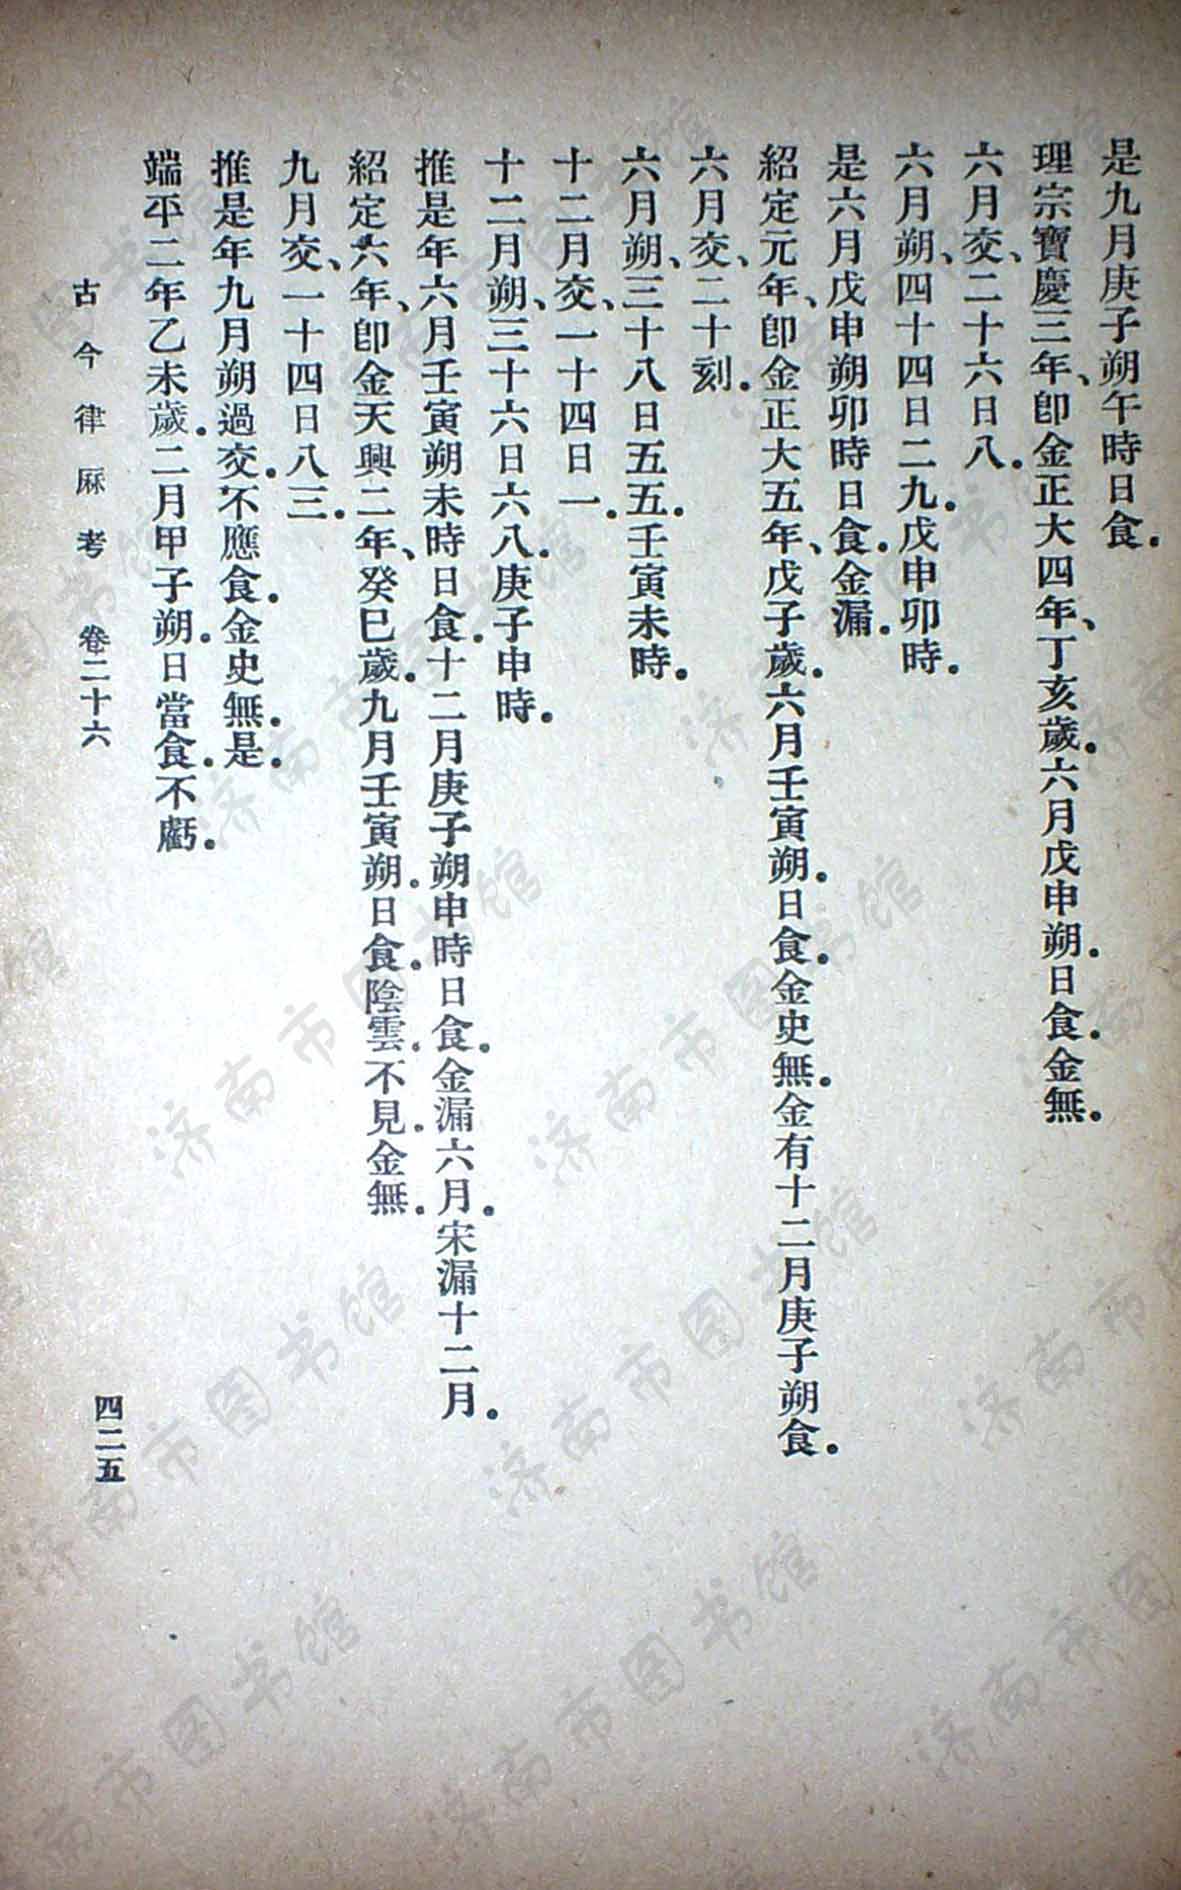 是九月庚子朔午時日食.
理宗寶慶三年、卽金正大四年、丁亥歲.六月戊申朔.日食.金無.
六月交、二十六日八.
六月朔、四十四日二九.戊申卯時.
是六月戊申朔卯時日食.金漏.
紹定元年、卽金正大五年、戊子歲.六月壬寅朔.日食.金史無.金有十二月庚子朔食.
六月交、二十刻.
六月朔、三十八日五五.壬寅未時.
十二月交、一十四日一.
十二月朔、三十六日六八.庚子申時.
推是年六月壬寅朔未時日食.十二月庚子朔申時日食.金漏六月.宋漏十二月.
紹定六年、卽金天興二年、癸巳歲.九月壬寅朔.日食.陰雲.不見.金無.
九月交、一十四日八三.
推是年九月朔過交.不應食.金史無.是.
端平二年乙未歲.二月甲子朔.日當食.不虧.
古今律厤考 卷二十六 四二五
濟南市图书馆